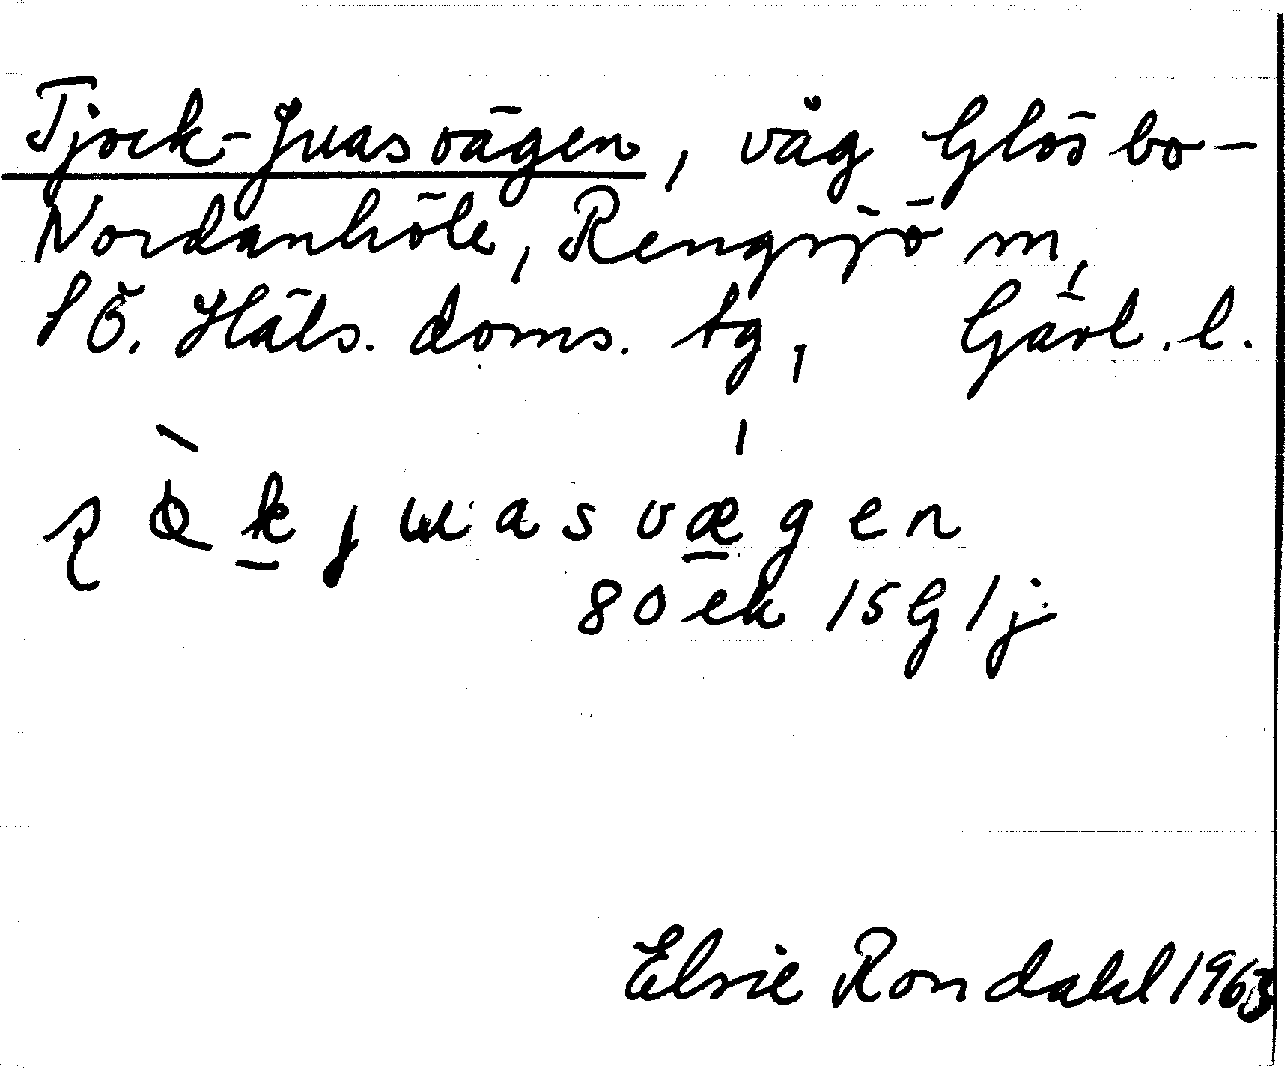 Tjock-Juasvägen, väg Glösbo-
Nordanhöle, Rengsjö sn,
SÖ. Häls. doms. tg, Gävl. l.
80 ek 15 G 1 j
Elsie Rondahl 1963